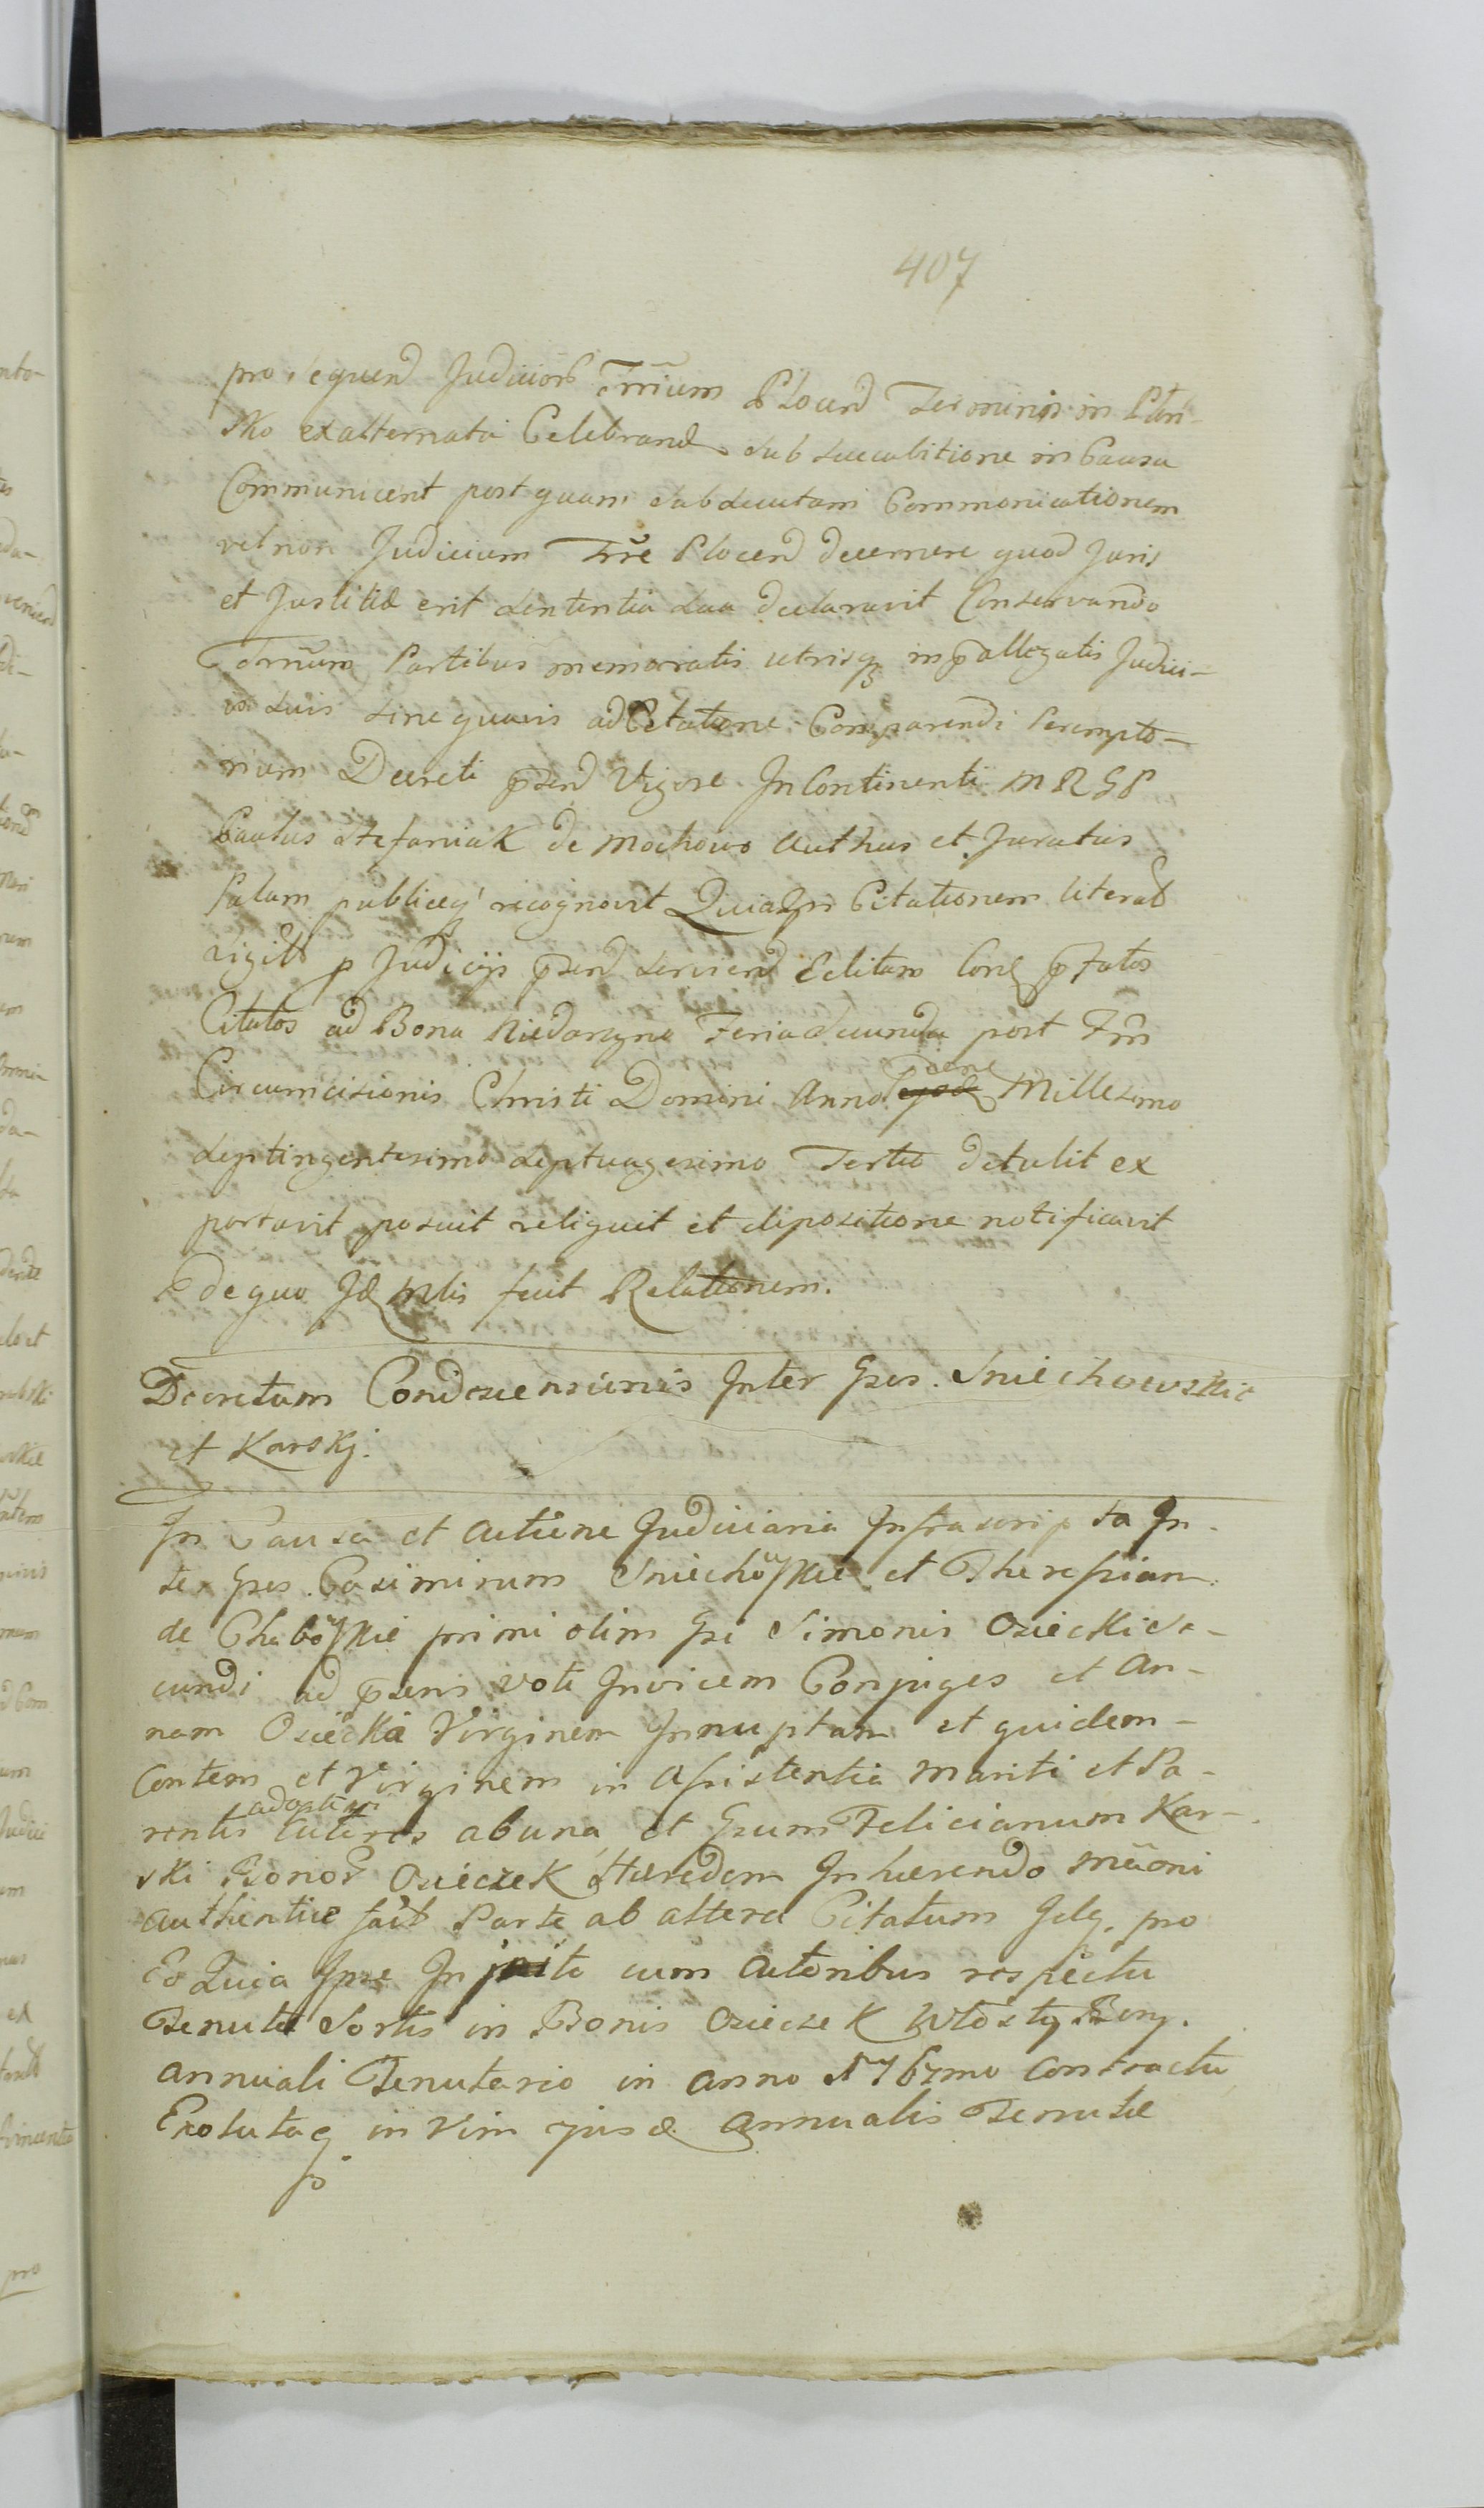 407
prosequend Judicior Trrium Plocen Terminis in Plon-
sko exalternata Celebrand sub succubitione in Causa
Communicent post quam subsecutam Communicationem
vel non Judicium Trre Plocen decernere quod Juris
et Justitiæ erit sententia sua declaravit Conservando
Trnum Partibus memoratis utrisq in pallegatis Judici-
is suis sine quavis adCitatione Comparendi Perempto-
rium Decreti psen Vigore InContinenti M R G P
Paulus Stefaniak de Mochowo Authus et Juratus
Palam publiceq recognovit Quia In Citationem literal
sigil p Judicijs psen servien Editam Cone pfatos
Citatos ad Bona Niedarzyno Feria Secunda post Frn
Circumcisionis Christi Domini Anno ejusd Millesimo
septingentesimo septuagesimo Tertio detulit ex
portavit posuit reliquit et depositione notificavit
de quo Id Mlis fecit Relationem.
Decretum Condescensionis Inter Gsos. Sniechowskie
et Karskj.
In Causa et Actione Judiciaria Infrascripta In-
ter Gsos. Casimirum Sniechowskie et Theressiam
de Chabowskie primi olim Gsi Simonis Osiecki Se-
cundi ad psens voti Invicem Conjuges et An-
nam Osiecka Virginem Innuptam et quidem
Contem et Virginem in Assistentia Mariti et Pa-
adoptivi
rentis Actores ab una, et Gsum Felicianum Kar-
ski Bonor Osieczek Hæredem Inhærendo Mãoni
Authentice Parte ab altera Citatum Ideq. pro
Eo Quia Ipse In cum Actoribus respectu
Tenutæ Sortis in Bonis Osieczek Włosty
Annuali Tenutario in Anno 1767mo Contractu
Exolutaq in Vim ejusd Annualis Tenutæ